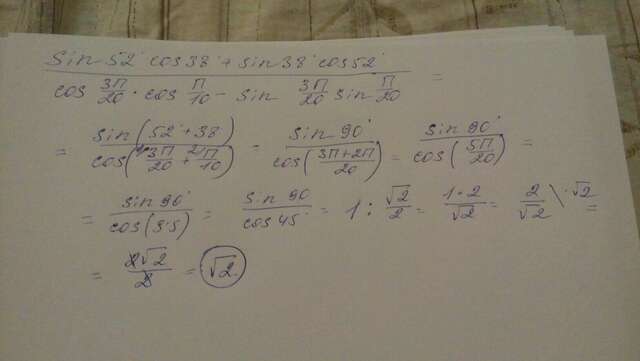 sin 52° cos 38° + sin 38° cos 52°
cos 3П/20 · cos П/10 - sin 3П/20 sin П/20 =
= sin(52° + 38°)/cos(3П/20 + 2\П/10) = sin 90°/cos(3П+2П/20) = sin 90°/cos(5П/20) =
= sin 90°/cos(9·5) = sin 90/cos 45° = 1 : √2/2 = 1·2/√2 = 2/√2 \·√2 =
= 2√2/2 = √2.